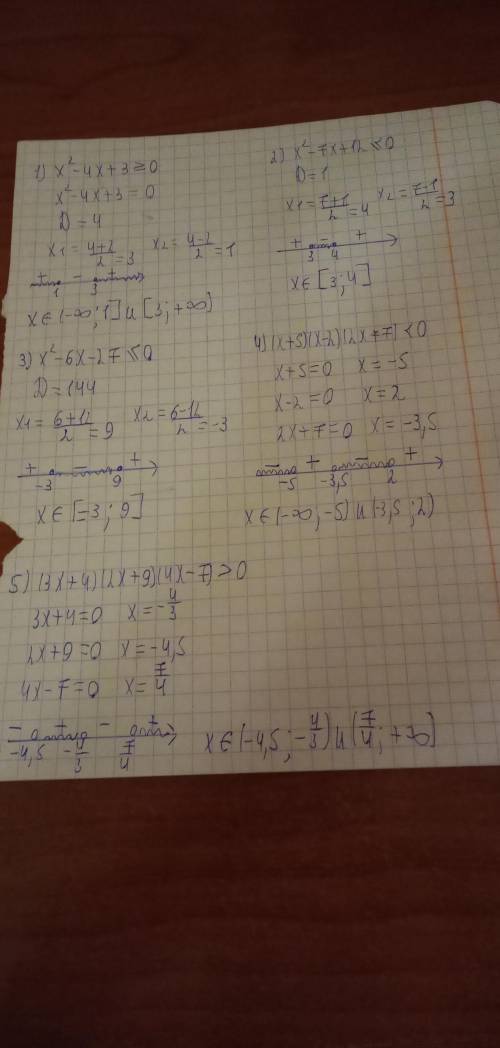 1) x²-4x+3≥0
x²-4x+3=0
D=4
x1=(4+2)/2=3 x2=(4-2)/2=1
+ - +
1 3
x∈(-∞;1]∪[3;+∞)
2) x²-7x+12≤0
D=1
x1=(7+1)/2=4 x2=(7-1)/2=3
+ - +
3 4
x∈[3;4]
3) x²-6x-27≤0
D=144
x1=(6+12)/2=9 x2=(6-12)/2=-3
+ - +
-3 9
x∈[-3;9]
4) (x+5)(x-2)(2x+7)<0
x+5=0 x=-5
x-2=0 x=2
2x+7=0 x=-3,5
- + - +
-5 -3,5 2
x∈(-∞;-5)∪(-3,5;2)
5) (3x+4)(2x+9)(4x-7)>0
3x+4=0 x=-4/3
2x+9=0 x=-4,5
4x-7=0 x=7/4
- + - +
-4,5 -4/3 7/4
x∈(-4,5;-4/3)∪(7/4;+∞)